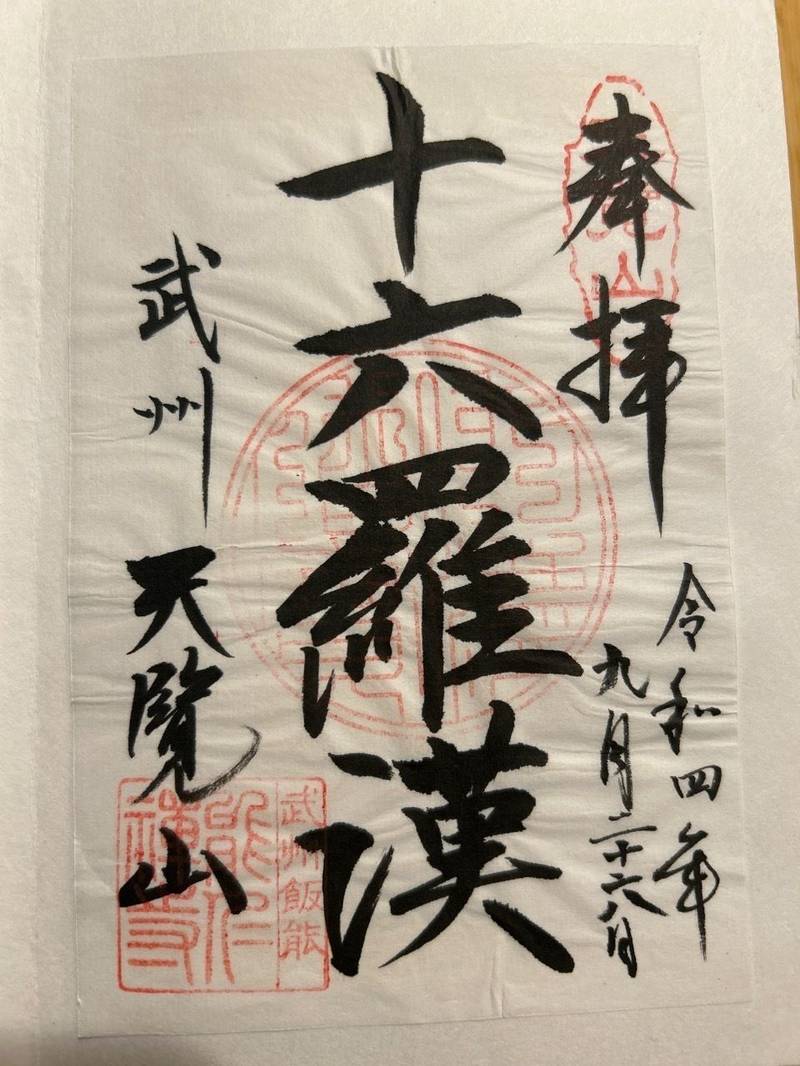 奉拝
令和四年
九月二十六日
十六羅漢
武州 天覧山
武州飯能
能仁
禅寺